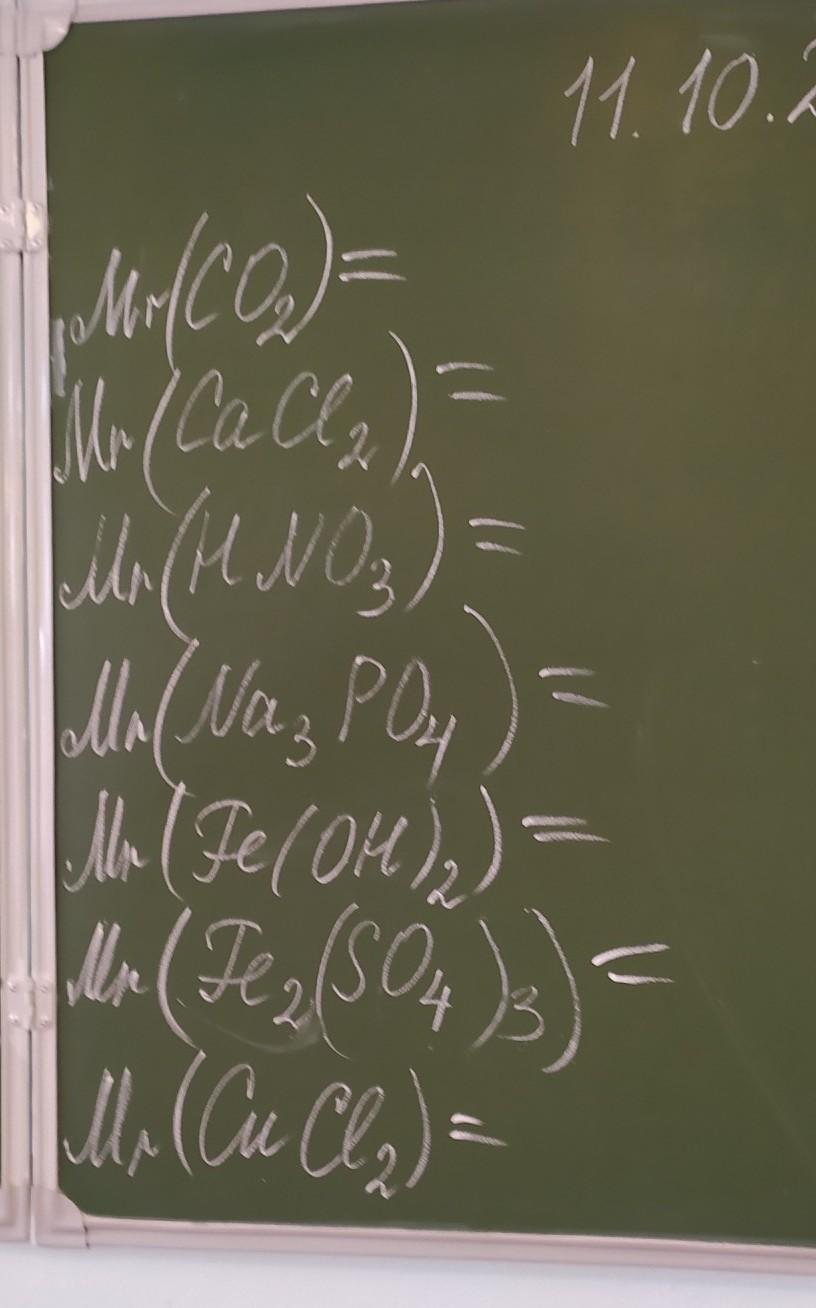 11.10.2
Mr(CO₂)=
Mr(CaCl₂)=
Mr(HNO₃)=
Mr(Na₃PO₄)=
Mr(Fe(OH)₂)=
Mr(Fe₂(SO₄)₃)=
Mr(CuCl₂)=